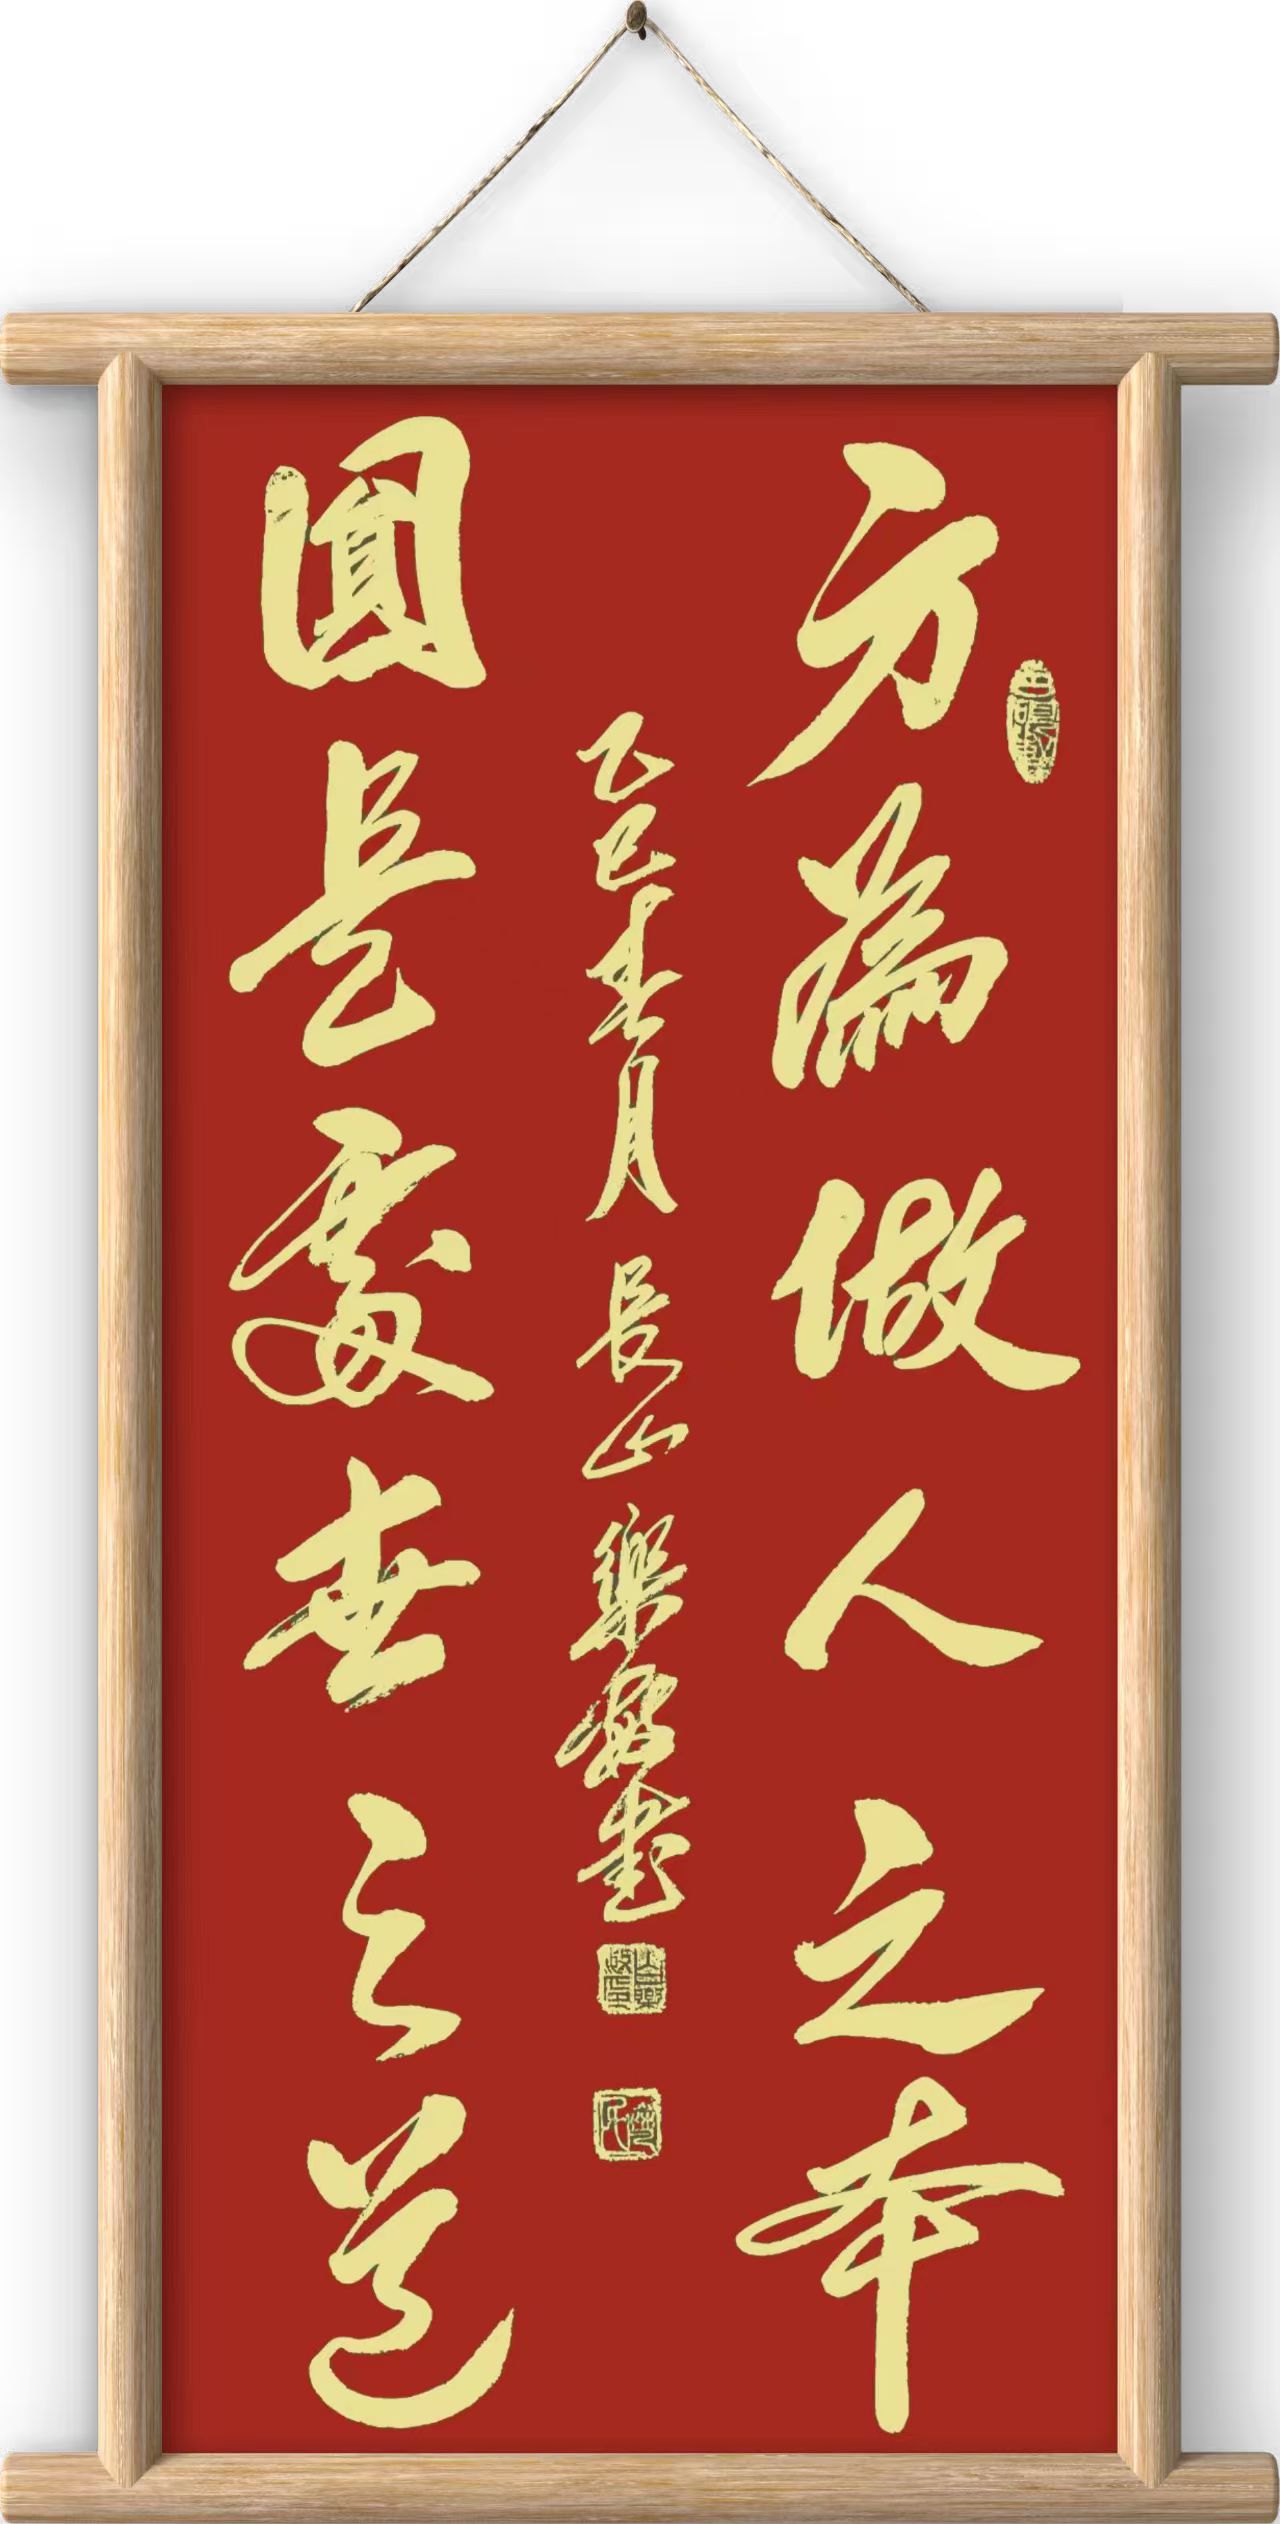 方為做人之本
乙巳春月 長山樂書
圓是處世之道